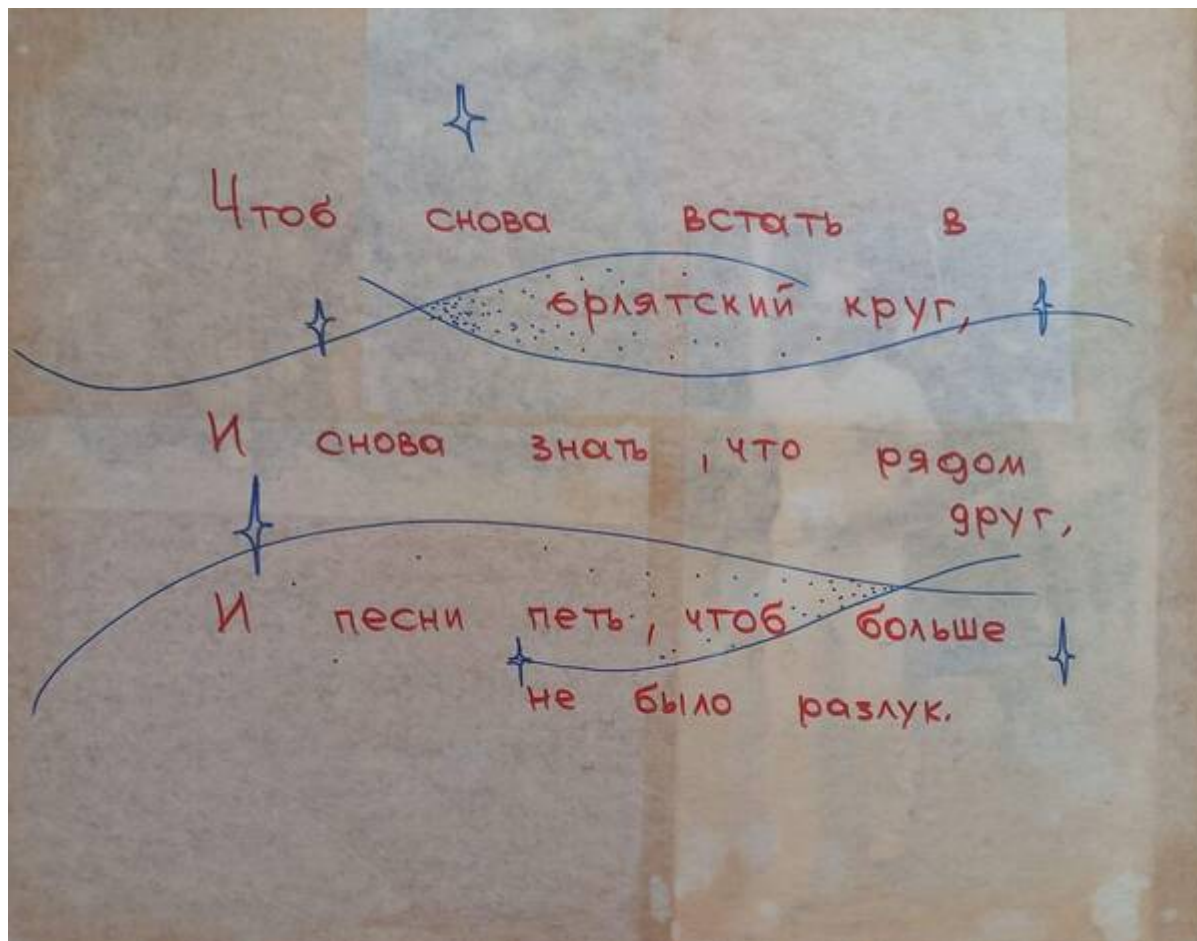 Чтоб снова встать в
орлятский круг,
И снова знать, что рядом
друг,
И песни петь, чтоб больше
не было разлук.